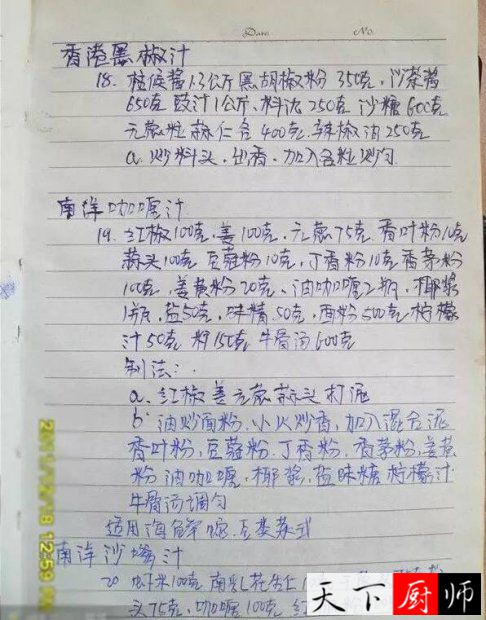 Date No.
香港黑椒汁
18. 柱候酱1.3公斤 黑胡椒粉 350克, 沙茶酱
650克 豉汁1公斤、料沈 250克 沙糖 600克
元葱粒 蒜仁各 400克. 辣椒油 250克
a. 炒料头. 出香. 加入各粒炒匀
南洋咖喱汁
19. 红椒100克. 姜100克. 元葱75克. 香叶粉10克
蒜头100克 豆蔻粉10克, 丁香粉10克 香茅粉
10克, 姜黄粉20克、油咖喱2瓶, 椰浆
1瓶, 盐50克, 味精50克, 面粉500克 柠檬
汁50克 料150克 牛骨汤600克
制法:
a. 红椒 姜 元葱 蒜头 打泥
b. 油炒面粉. 小火炒香, 加入混合泥
香叶粉, 豆蔻粉. 丁香粉, 香茅粉, 姜黄
粉 油咖喱, 椰浆, 盐味精 柠檬汁
牛骨汤调匀
适用海鲜
南洋沙嗲汁
20 虾米100克 南乳花生仁
头75克, 咖喱100克 红
12:59 PM
天下厨师